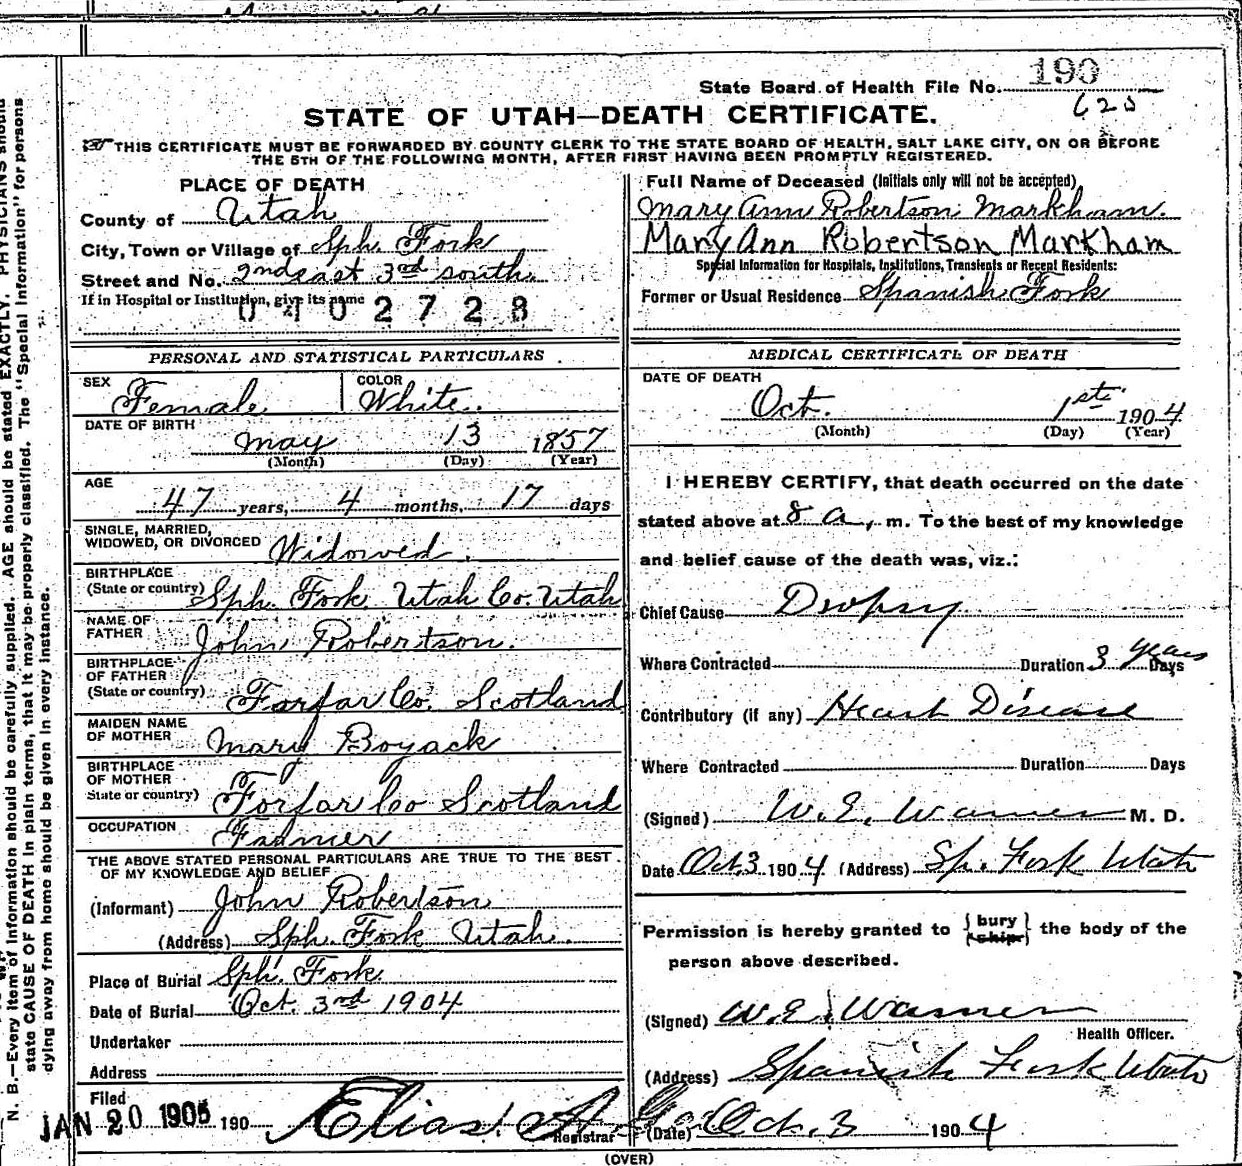 State Board of Health File No. 190
625
STATE OF UTAH—DEATH CERTIFICATE.
THIS CERTIFICATE MUST BE FORWARDED BY COUNTY CLERK TO THE STATE BOARD OF HEALTH, SALT LAKE CITY, ON OR BEFORE
THE 5TH OF THE FOLLOWING MONTH, AFTER FIRST HAVING BEEN PROMPTLY REGISTERED.
PLACE OF DEATH
County of Utah
City, Town or Village of Sph. Fork
Street and No. 2nd east 3rd south
If in Hospital or Institution, give its name
0402728
Full Name of Deceased (Initials only will not be accepted)
Mary Ann Robertson Markham.
Mary Ann Robertson Markham
Special Information for Hospitals, Institutions, Transients or Recent Residents:
Former or Usual Residence Spanish Fork
PERSONAL AND STATISTICAL PARTICULARS
SEX Female
COLOR White.
DATE OF BIRTH
May 13 1857
(Month) (Day) (Year)
AGE
47 years, 4 months, 17 days
SINGLE, MARRIED,
WIDOWED, OR DIVORCED Widowed.
BIRTHPLACE
(State or country) Sph. Fork Utah Co. Utah
NAME OF
FATHER John Robertson.
BIRTHPLACE
OF FATHER
(State or country) Forfar Co. Scotland
MAIDEN NAME
OF MOTHER Mary Boyack
BIRTHPLACE
OF MOTHER
State or country) Forfar Co Scotland
OCCUPATION Farmer
THE ABOVE STATED PERSONAL PARTICULARS ARE TRUE TO THE BEST
OF MY KNOWLEDGE AND BELIEF
(Informant) John Robertson
(Address) Sph. Fork Utah.
Place of Burial Sph. Fork
Date of Burial Oct. 3rd 1904
Undertaker
Address
Filed
JAN 20 1905 190
Elias A
Registrar
MEDICAL CERTIFICATE OF DEATH
DATE OF DEATH
Oct. 1st 1904
(Month) (Day) (Year)
I HEREBY CERTIFY, that death occurred on the date
stated above at 8 a. m. To the best of my knowledge
and belief cause of the death was, viz.:
Chief Cause Dropsy
Where Contracted Duration 3 years Days
Contributory (if any) Heart Disease
Where Contracted Duration Days
(Signed) W. E. Warner M. D.
Date Oct 3 1904 (Address) Sp. Fork Utah
Permission is hereby granted to {bury
{ship} the body of the
person above described.
(Signed) W. E. Warner
Health Officer.
(Address) Spanish Fork Utah
(Date) Oct. 3 1904
(OVER)
N. B.—Every item of information should be carefully supplied. AGE should be stated EXACTLY. PHYSICIANS should
state CAUSE OF DEATH in plain terms, that it may be properly classified. The "Special Information" for persons
dying away from home should be given in every instance.